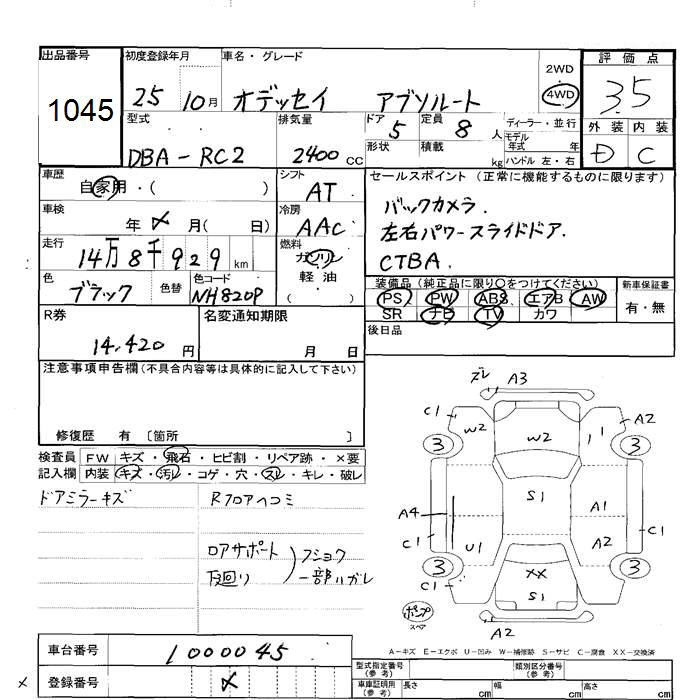 出品番号
1045
初度登録年月
25 10月
車名・グレード
オデッセイ アブソルート
2WD
4WD
評価点
3.5
型式
DBA-RC2
排気量
2400 CC
ドア
5
形状
定員
8 人
積載
kg
ディーラー・並行
モデル年式 年
ハンドル 左・右
外装 内装
D C
車歴
自家用・( )
シフト
AT
セールスポイント (正常に機能するものに限ります)
バックカメラ.
左右パワースライドドア.
CTBA.
車検
年 メ 月( 日)
冷房
AAC
走行
14万8千929 km
燃料
ガソリン
軽油
( )
色
ブラック
色替
色コード
NH820P
装備品 (純正品に限り○をつけてください)
PS PW ABS エアB AW
SR ナビ TV カワ
新車保証書
有・無
R券
14,420 円
名変通知期限
月 日
後日品
注意事項申告欄(不具合内容等は具体的に記入して下さい)
修復歴 有 〔箇所 〕
検査員 FW キズ・飛石・ヒビ割・リペア跡・×要
記入欄 内装 キズ・汚レ・コゲ・穴・スレ・キレ・破レ
ドアミラーキズ
Rフロアヘコミ
ロアサポート
下廻り
フショク
一部ハガレ
ズレ A3
C1 W2 W2 A2
3 3
S1
A4 A1
C1 C1
U1 A2
3 3
XX
C1 S1
ポンプ
スペア
A2
A-キズ E-エクボ U-凹み W-補修跡 S-サビ C-腐食 XX-交換済
車台番号
1000045
登録番号
メ
型式指定番号
(参考)
類別区分番号
(参考)
車庫証明用
(参考)
長さ cm
幅 cm
高さ cm